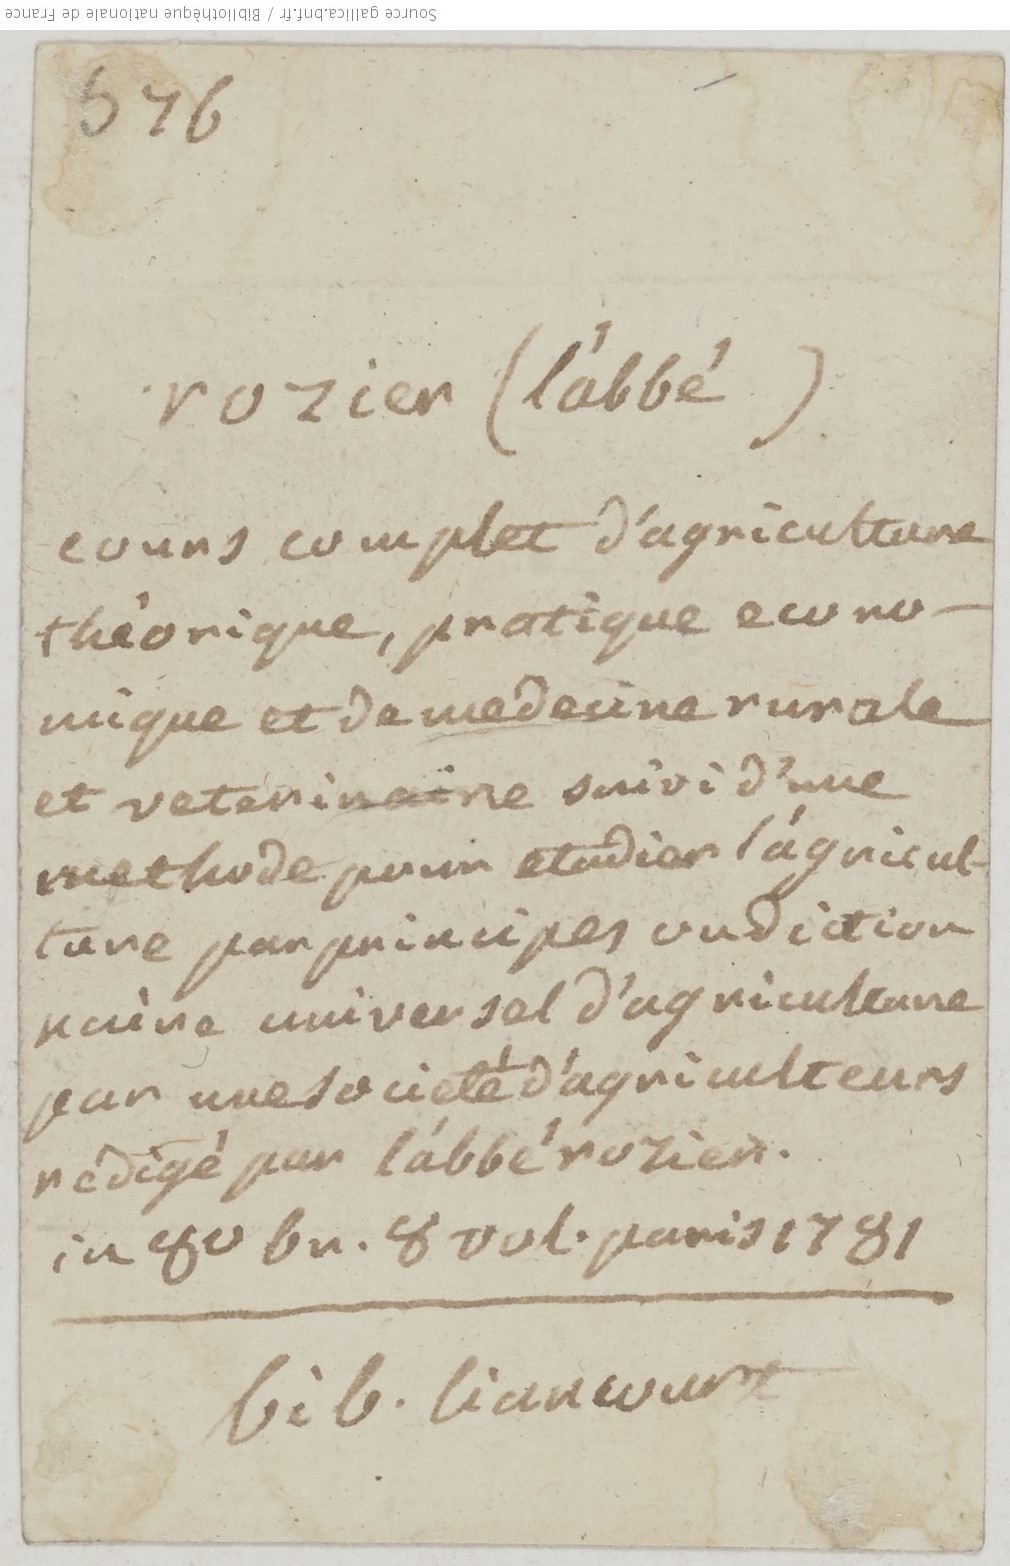 Source gallica.bnf.fr / Bibliothèque nationale de France
576
rozier (l'abbé)
cours complet d'agriculture
théorique, pratique econo-
mique et de medecine rurale
et veterinaire suivi d'une
methode pour etudier l'agricul-
ture par principes ou diction
naire universel d'agriculture
par une societé d'agriculteurs
rédigé par l'abbé rozier.
in 8º br. 8 vol. paris 1781
bib. liancourt